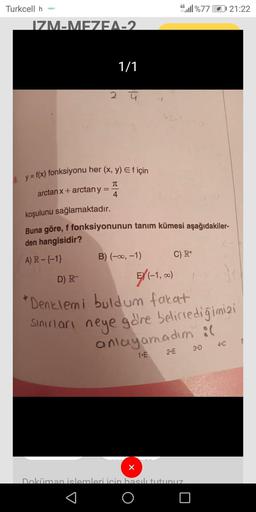 Turkcell h
%77 21:22
IZM-MEZFA-2
1/1
2 π/4
y = f(x) fonksiyonu her (x, y) ∈ f için
arctanx + arctany = π/4
koşulunu sağlamaktadır.
Buna göre, f fonksiyonunun tanım kümesi aşağıdakiler-
den hangisidir?
A) R – {–1} B) (–∞, –1) C) R⁺
D) R⁻ E) (–1, ∞)
*Denklemi buldum fakat
sınırları neye göre belirlediğimizi
anlayamadım :(
1-E 2-E 3-D 4-C
Doküman işlemleri için basılı tutunuz